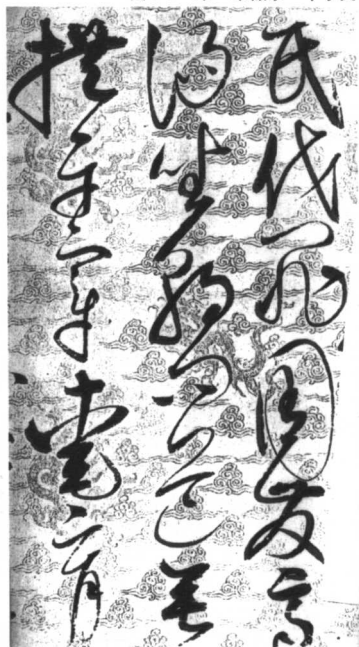 民伐罪周發商
湯坐朝問道垂
拱平章愛育